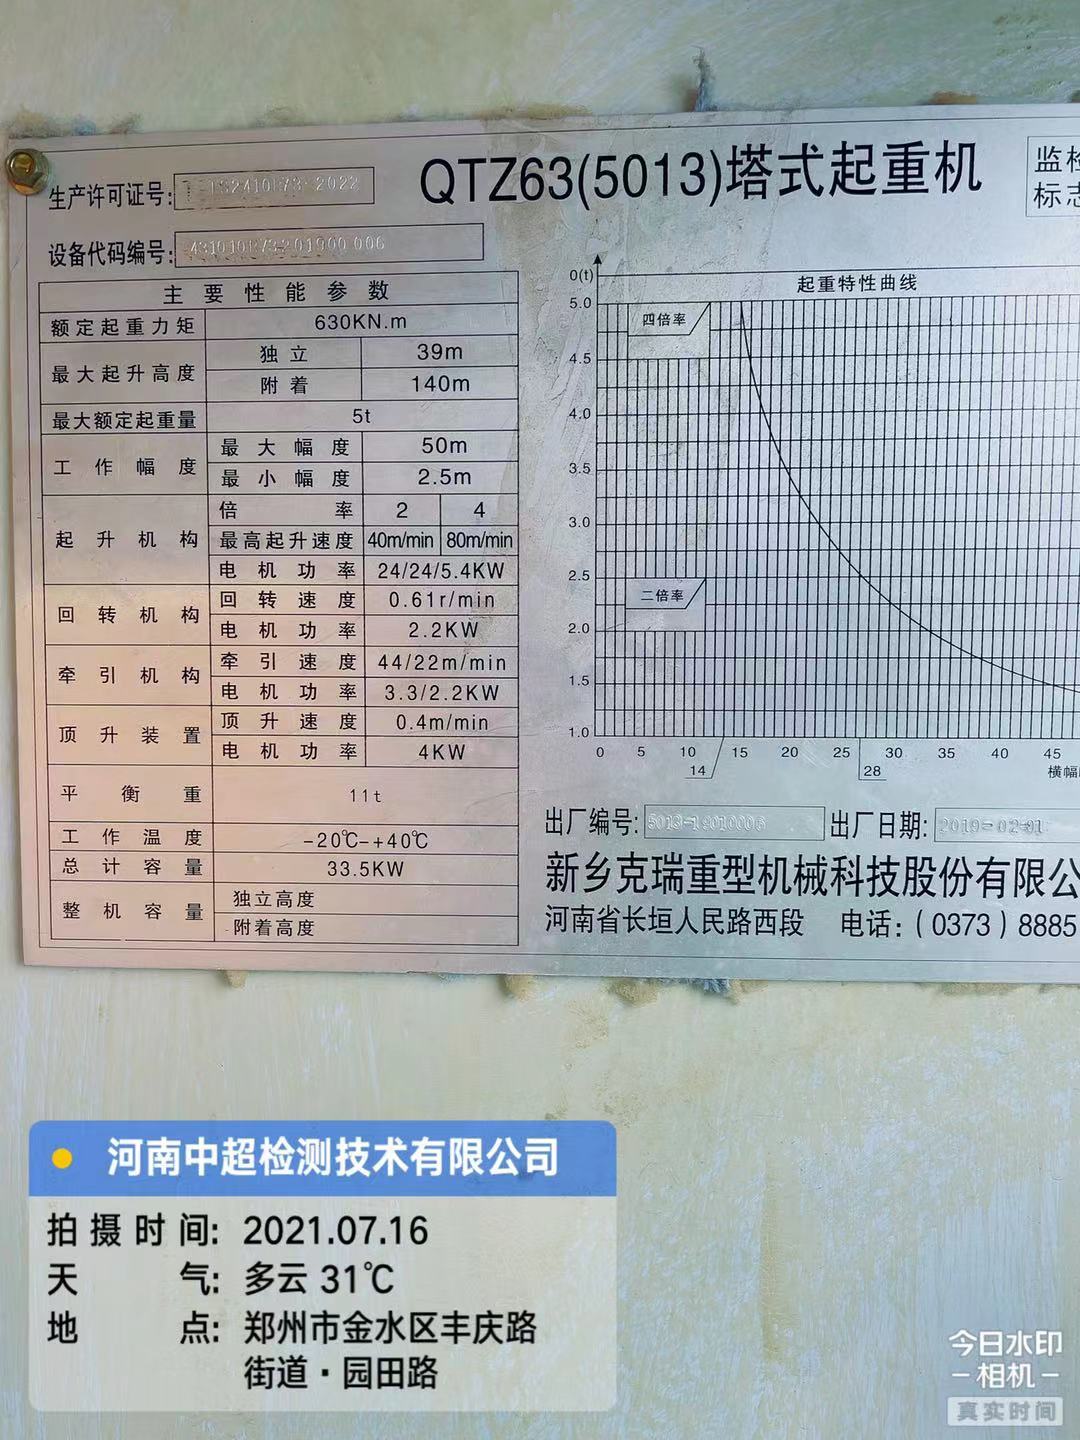 QTZ63(5013)塔式起重机
监检
标志
生产许可证号:
设备代码编号:
主要性能参数
额定起重力矩 630KN.m
最大起升高度 独立 39m
附着 140m
最大额定起重量 5t
工作幅度 最大幅度 50m
最小幅度 2.5m
起升机构 倍率 2 4
最高起升速度 40m/min 80m/min
电机功率 24/24/5.4KW
回转机构 回转速度 0.61r/min
电机功率 2.2KW
牵引机构 牵引速度 44/22m/min
电机功率 3.3/2.2KW
顶升装置 顶升速度 0.4m/min
电机功率 4KW
平衡重 11t
工作温度 -20℃-+40℃
总计容量 33.5KW
整机容量 独立高度
附着高度
起重特性曲线
0(t)
5.0
四倍率
4.5
4.0
3.5
3.0
2.5
二倍率
2.0
1.5
1.0
0 5 10 15 20 25 30 35 40 45
14 28
横幅
出厂编号: 出厂日期: 2019-02-01
新乡克瑞重型机械科技股份有限公
河南省长垣人民路西段 电话:(0373)8885
河南中超检测技术有限公司
拍摄时间: 2021.07.16
天气: 多云 31℃
地点: 郑州市金水区丰庆路
街道·园田路
今日水印
-相机-
真实时间